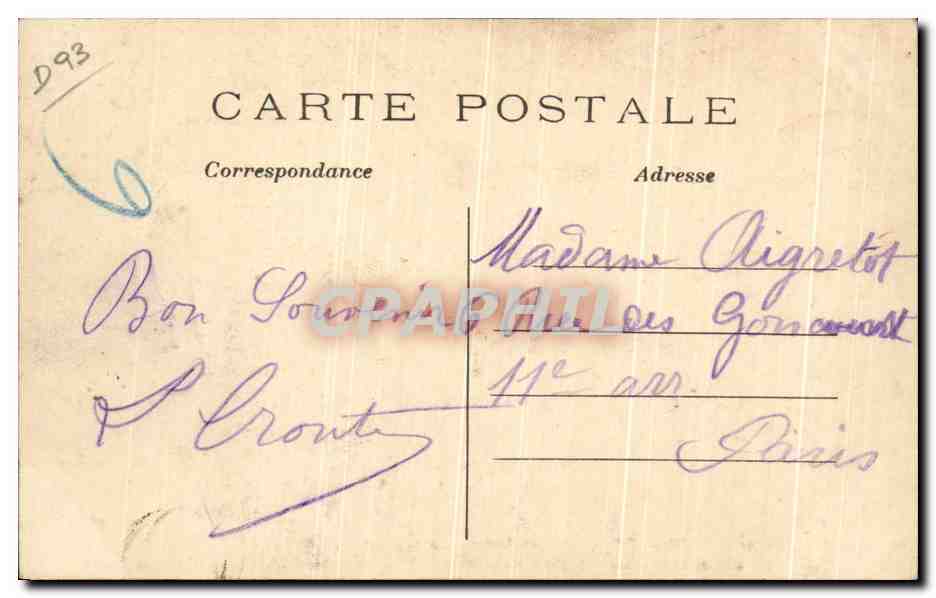 D93
6
CARTE POSTALE
Correspondance
Adresse
Bon Souvenir
Madame Aigretot
Rue des
11e arr.
Paris
CPAPHIL